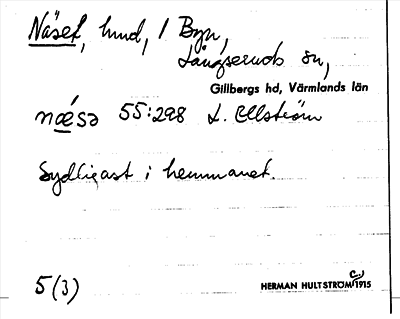 Näset, hmd, 1 Byn,
Långseruds sn,
Gillbergs hd, Värmlands län
næ´sə 55:298 L. Ellström
Sydligast i hemmanet.
5(3)
HERMAN HULTSTRÖM C:a 1915